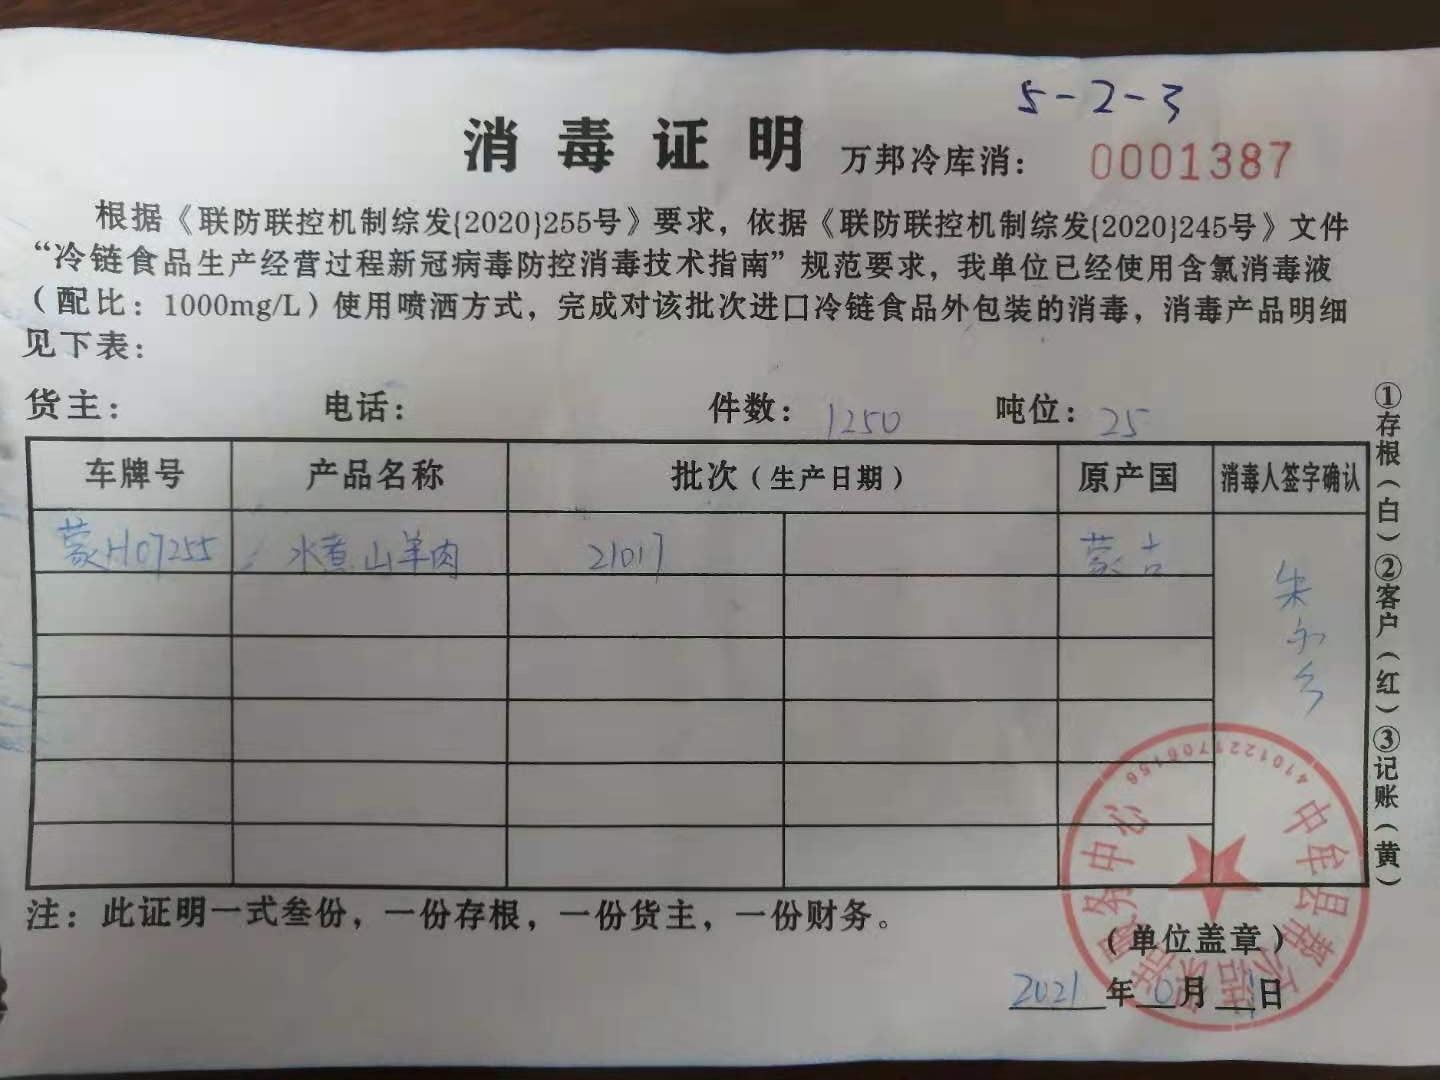 5-2-3
消毒证明 万邦冷库消: 0001387
根据《联防联控机制综发{2020}255号》要求，依据《联防联控机制综发{2020}245号》文件
“冷链食品生产经营过程新冠病毒防控消毒技术指南”规范要求，我单位已经使用含氯消毒液
（配比：1000mg/L）使用喷洒方式，完成对该批次进口冷链食品外包装的消毒，消毒产品明细
见下表：
货主： 电话： 件数：1250 吨位：25
车牌号 产品名称 批次（生产日期） 原产国 消毒人签字确认
蒙H07255 水煮山羊肉 21017 蒙古
朱
注：此证明一式叁份，一份存根，一份货主，一份财务。
（单位盖章）
2021年 月 日
①存根（白）②客户（红）③记账（黄）
4101221706156
中牟县 服务中心